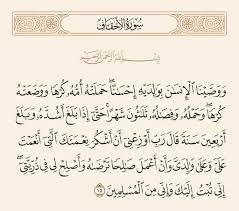 سُورَةُ الْأَحْقَافِ
بِسْمِ اللَّهِ الرَّحْمَٰنِ الرَّحِيمِ
وَوَصَّيْنَا الْإِنسَٰنَ بِوَٰلِدَيْهِ إِحْسَٰنًا ۖ حَمَلَتْهُ أُمُّهُۥ كُرْهًا وَوَضَعَتْهُ
كُرْهًا ۖ وَحَمْلُهُۥ وَفِصَٰلُهُۥ ثَلَٰثُونَ شَهْرًا ۚ حَتَّىٰٓ إِذَا بَلَغَ أَشُدَّهُۥ وَبَلَغَ
أَرْبَعِينَ سَنَةً قَالَ رَبِّ أَوْزِعْنِىٓ أَنْ أَشْكُرَ نِعْمَتَكَ الَّتِىٓ أَنْعَمْتَ
عَلَىَّ وَعَلَىٰ وَٰلِدَىَّ وَأَنْ أَعْمَلَ صَٰلِحًا تَرْضَىٰهُ وَأَصْلِحْ لِى فِى ذُرِّيَّتِىٓ ۖ
إِنِّى تُبْتُ إِلَيْكَ وَإِنِّى مِنَ الْمُسْلِمِينَ ١٥